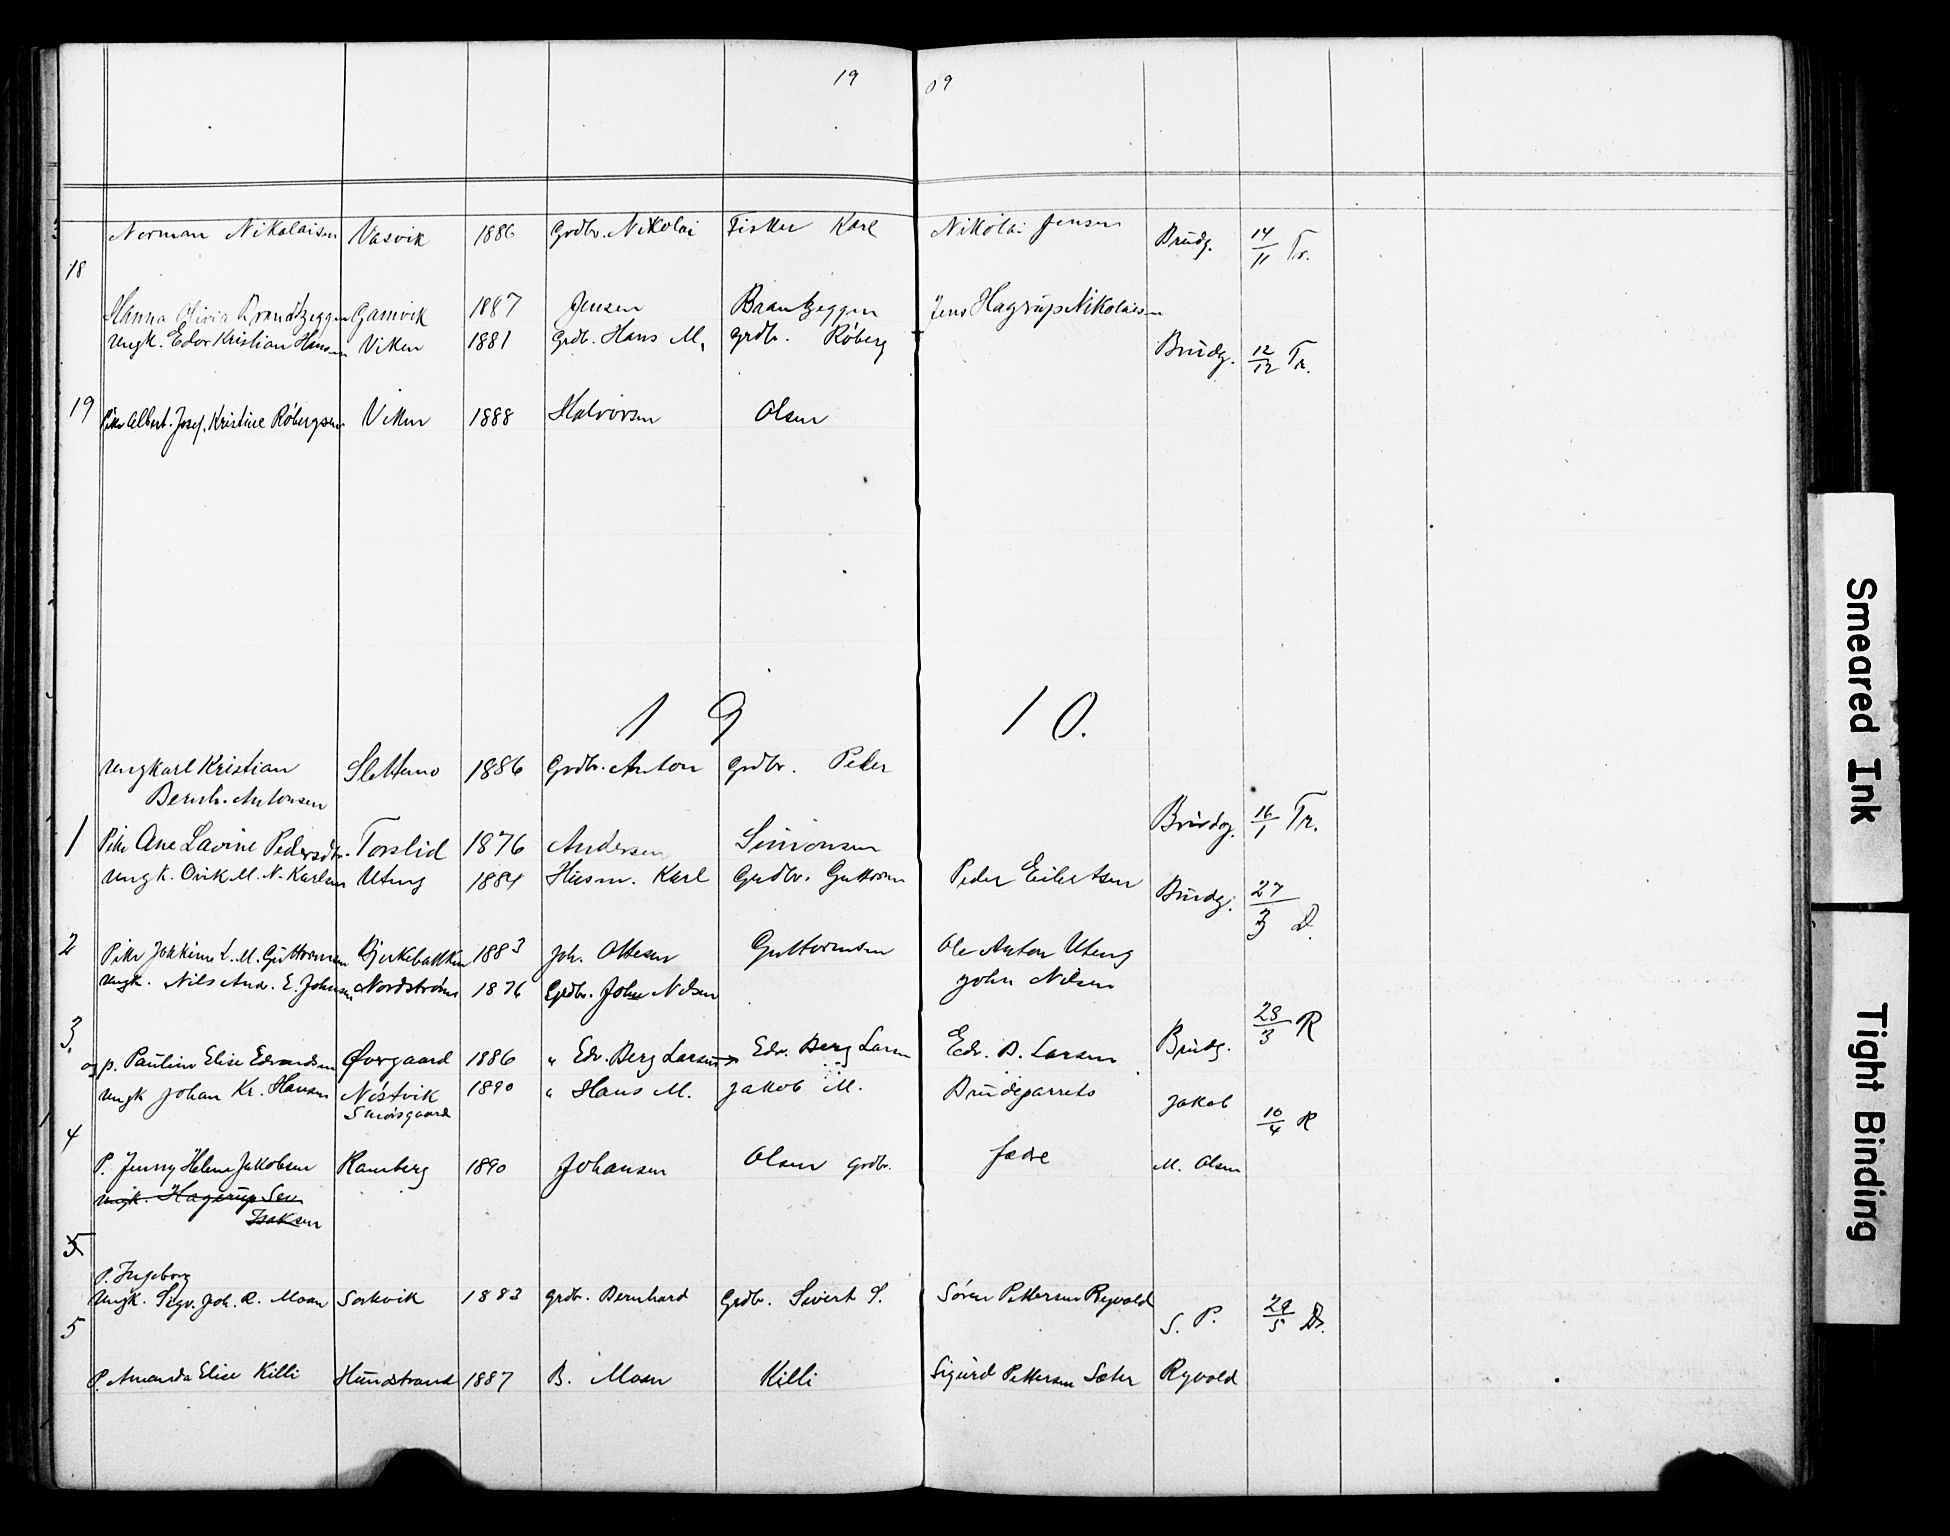 19 09
Norman Nikolaisen Vasvik 1886 Grdbr. Nikolai Fisker Karl Nikolai Jensen Brudg. 14/11 Tr.
18
Hanna Olivia Brandtzeggen Gamvik 1887 Jensen Brantzeggen Jens Hagrup Nikolaisen
Ungk. Edor Kristian Hansen Viken 1881 Grdb. Hans M. grdb. Røberg Brudg. 12/12 Tr.
19 Pike Albert. Josef. Kristine Røbergsen Viken 1888 Halvorsen Olsen
19 10.
Ungkarl Kristian Slettmo 1886 Grdbr. Anton Grdbr. Peder
Bernh. Antonsen
Brudg. 16/1 Tr.
1 Pike Ane Lavine Pedersdtr. Torslid 1876 Andersen Simonsen
Ungk. M. N. Karlsen Uteng 1884 Husm. Karl Grdbr. Guttorm Peder Eilertsen Brudg. 27/3 D.
2 Pike Joakime L. M. Guttormsen Bjerkebakken 1883 Joh. Ottesen Guttormsen Ole Anton Uteng
Ungk. Nils And. E. Johnsen Nordstrøm 1876 Grdbr. John Nilsen John Nilsen
28/3 R
3. og p. Pauline Elise Edvardsen Øvrgaard 1886 " Edv. Berg Larsen → Edv. Berg Larsen Edv. B. Larsen Brudg.
Ungk Johan Kr. Hansen Nøstvik 1890 " Hans M. Jakob M. Brudeparrets Jakob 10/4 R
Smørsgaard
4
P. Jenny Helene Jakobsen Ramberg 1890 Johansen Olsen Grdbr. fædre M. Olsen
Ungk. Hagerup Sev
Isaksen
5
P. Ingeborg
Ungk. Sigv. Joh. R. Moan Sorkvik 1883 grdb. Bernhard Grdb. Sivert S. Søren Pettersen Ryvold S. P. 29/5 Dr.
5
P. Amanda Elise Killi Hundstrand 1887 B. Moan Killi Sigurd Pettersen Sæter Ryvold
Smeared Ink
Tight Binding